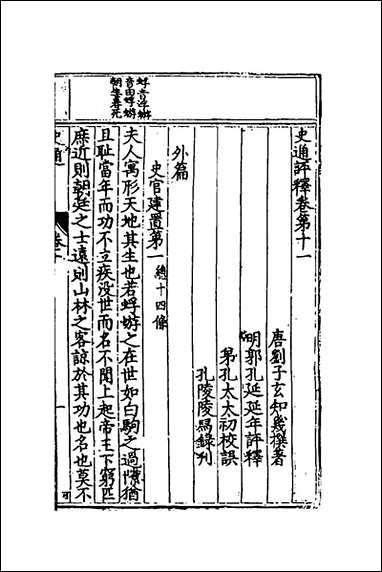 史通評釋卷第十一
唐劉子玄知幾撰著
明郭孔延延年評釋
弟孔太太初校誤
孔陵陵舄錄刋
外篇
史官建置第一 總十四條
夫人寓形天地其生也若蜉蝣之在世如白駒之過隙猶
且恥當年而功不立疾没世而名不聞上起帝王下窮匹
庶近則朝廷之士遠則山林之客諒於其功也名也莫不
蜉音浮蝣
音由蜉蝣
朝生暮死
史通